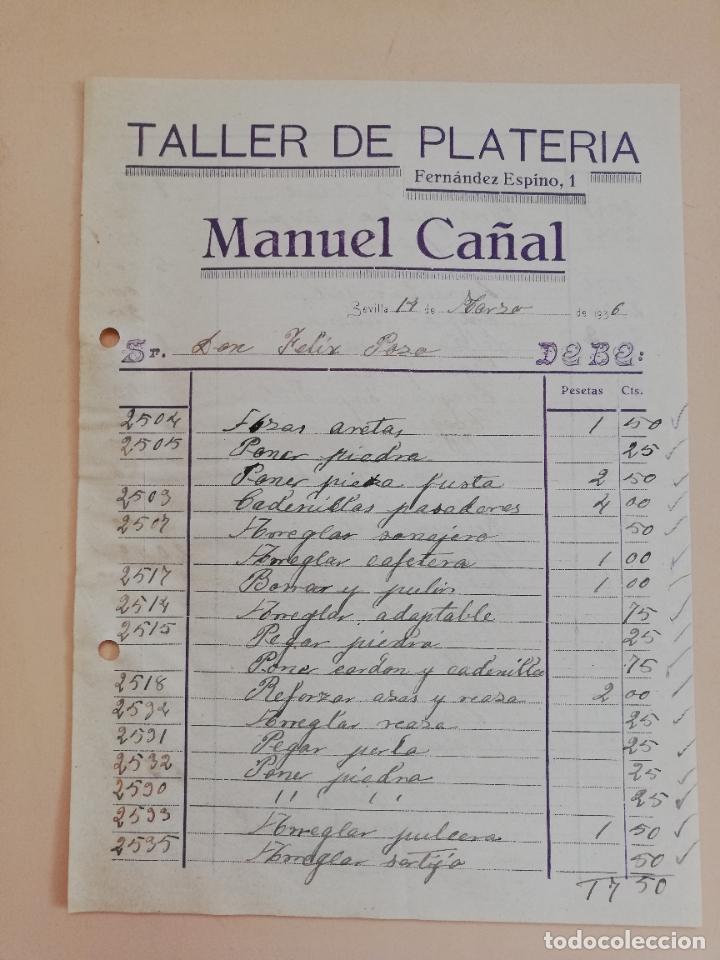 TALLER DE PLATERIA
Fernández Espino, 1
Manuel Cañal
Sevilla 14 de Marzo de 1936
Sr. Don Felix Pozo DEBE:
Pesetas Cts.
2504 asas aretas 1 50
2505 Poner piedra 25
Poner pieza fusta 2 50
2503 Cadenillas pasadores 4 00
2507 Arreglar sonajero 50
Arreglar cafetera 1 00
2517 Borrar y pulir 1 00
2514 Arreglar adaptable 75
2515 Pegar piedra 25
Poner cordon y cadenilla 75
2518 Reforzar asas y reasa 2 00
2592 Arreglar reasa 25
2591 Pegar perla 25
2532 Poner piedra 25
2590 " " 25
2593 Arreglar pulcera 1 50
2535 Arreglar sortija 50
17 50
todocoleccion.net